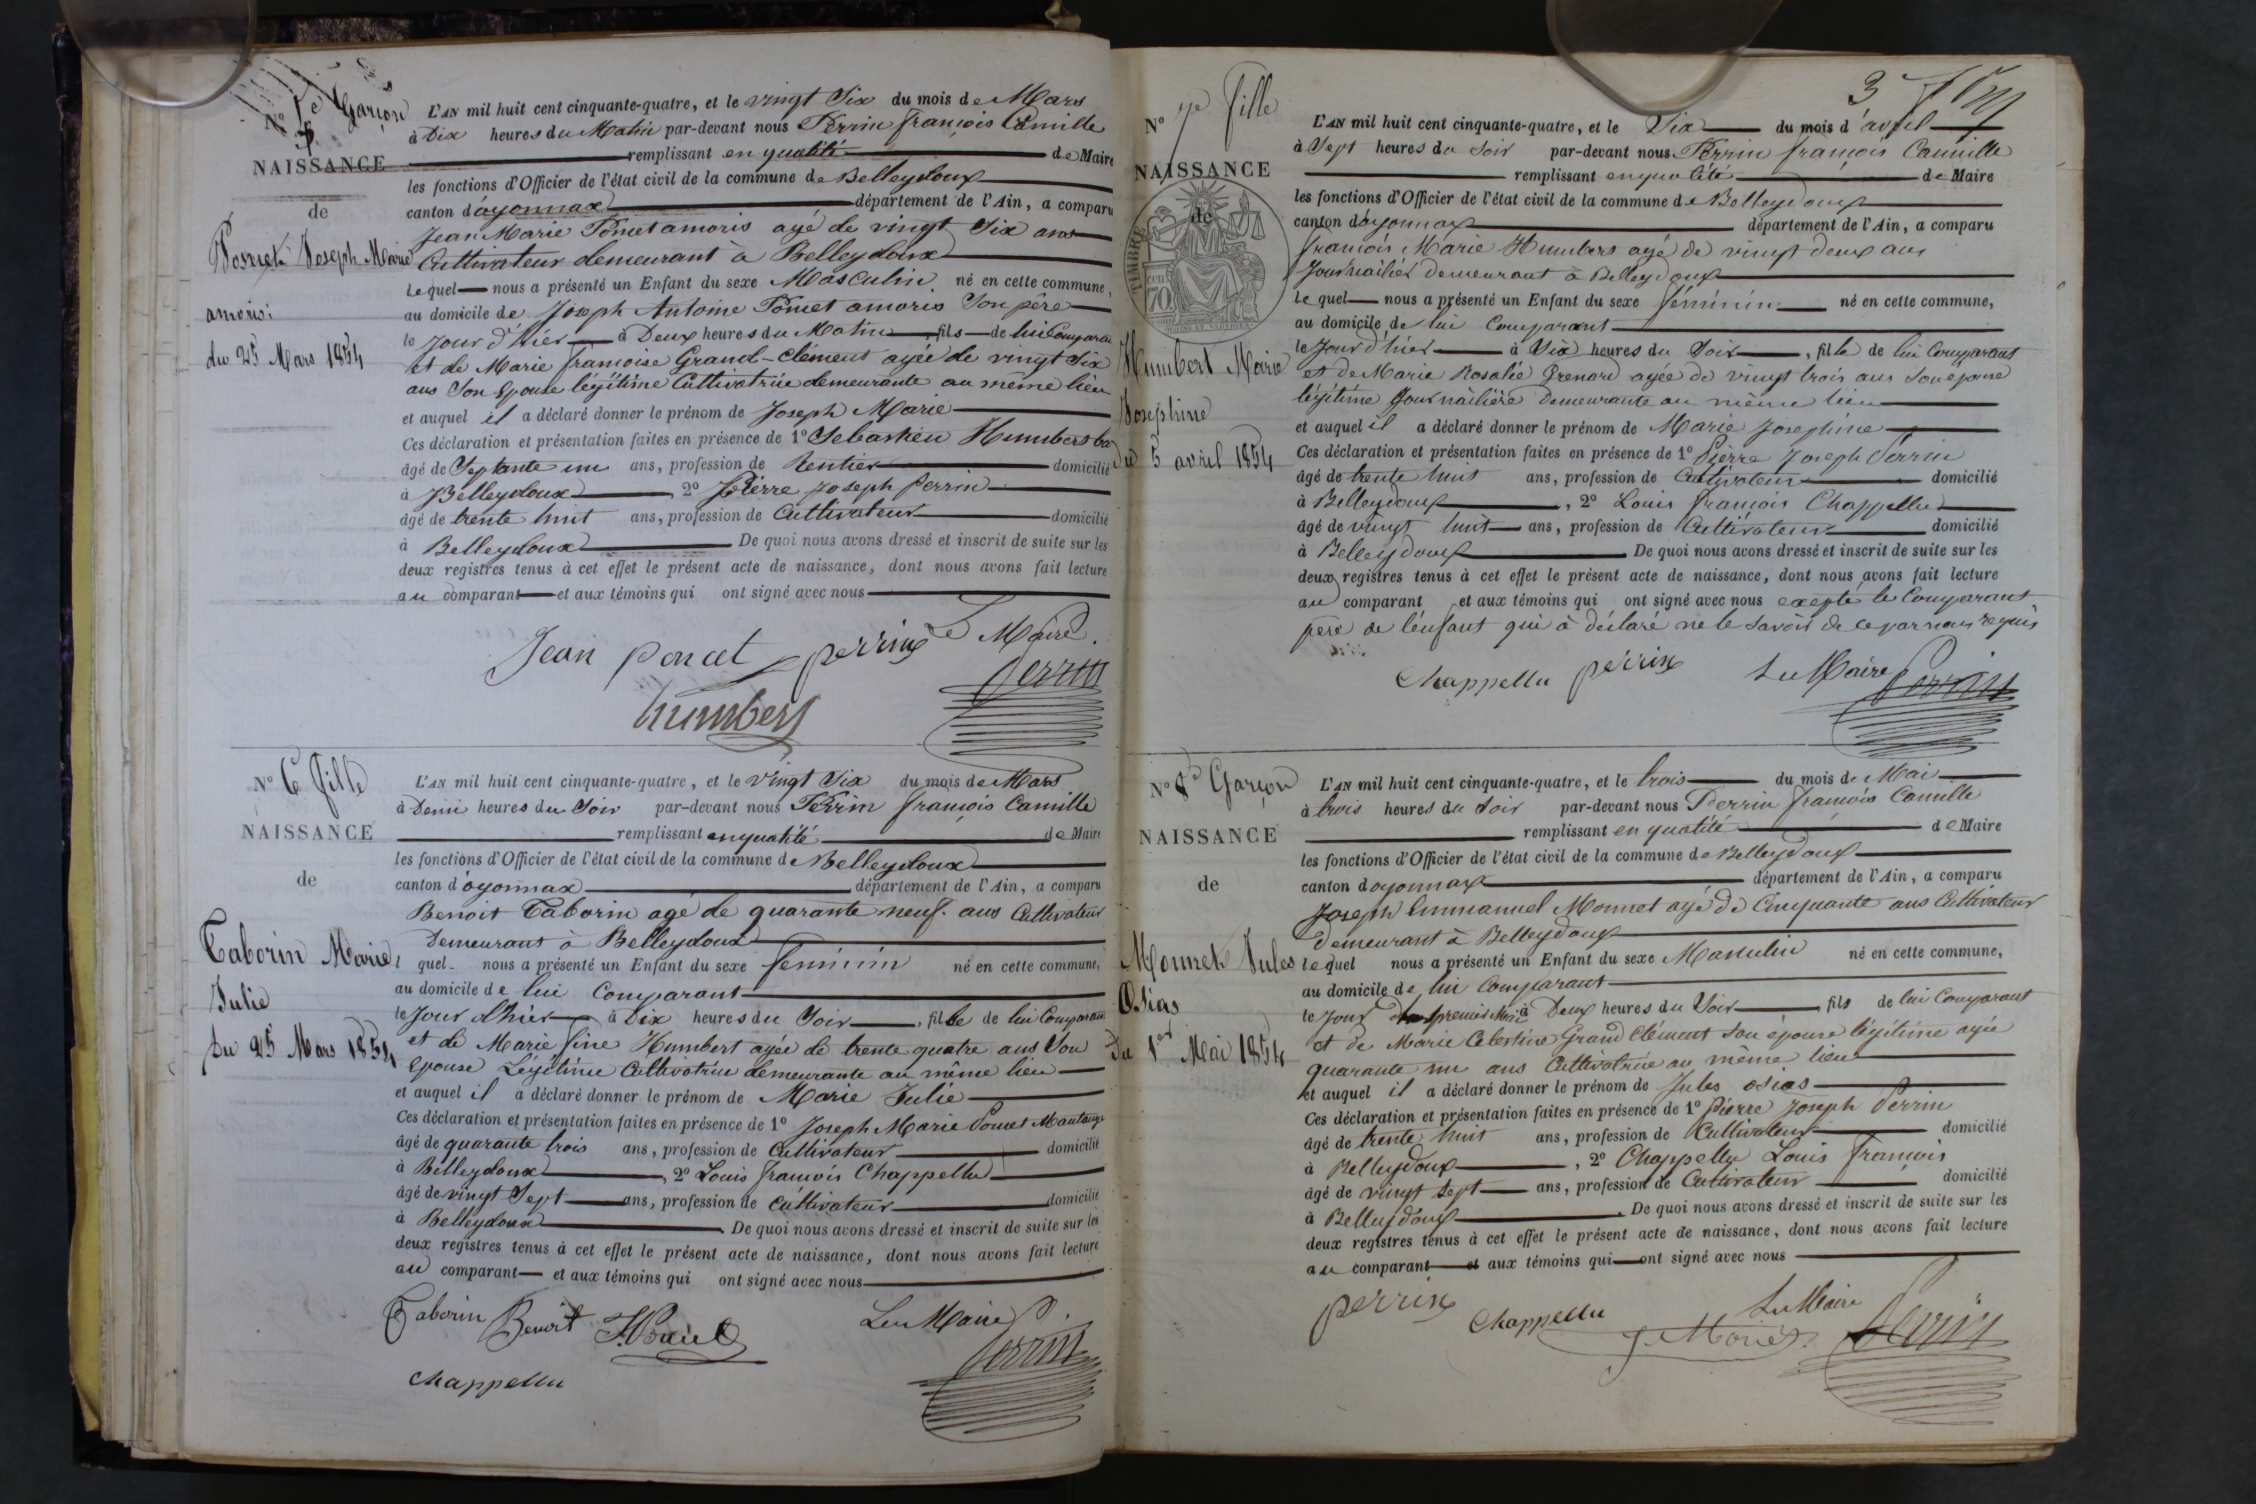 Nº 5e Garçon
NAISSANCE
de
Poncet Joseph Marie
amoris
du 25 Mars 1854
L'AN mil huit cent cinquante-quatre, et le vingt Six du mois de Mars
à Dix heures du Matin par-devant nous Perrin françois Camille
remplissant en qualité de Maire
les fonctions d'Officier de l'état civil de la commune de Belleydoux
canton d'oyonnax département de l'Ain, a comparu
Jean Marie Poncet amoris agé de vingt Six ans
Cultivateur demeurant à Belleydoux
Le quel nous a présenté un Enfant du sexe Masculin né en cette commune,
au domicile de Joseph Antoine Poncet amoris Son père
le Jour d'hier à Deux heures du Matin, fils de lui Comparant
et de Marie françoise Grand-Clément agée de vingt Six
ans Son Epouse légitime Cultivatrice demeurante au même lieu
et auquel il a déclaré donner le prénom de Joseph Marie
Ces déclaration et présentation faites en présence de 1º Sebastien Humbert
âgé de Septante un ans, profession de Rentier domicilié
à Belleydoux, 2º Pierre Joseph Perrin
âgé de trente huit ans, profession de Cultivateur domicilié
à Belleydoux De quoi nous avons dressé et inscrit de suite sur les
deux registres tenus à cet effet le présent acte de naissance, dont nous avons fait lecture
au comparant et aux témoins qui ont signé avec nous
Jean poncet perrin Le Maire
Perrin
humbert
Nº 6 fille
NAISSANCE
de
Taborin Marie
Julie
Du 25 Mars 1854
L'AN mil huit cent cinquante-quatre, et le vingt Six du mois de Mars
à Demi heures du Soir par-devant nous Perrin françois Camille
remplissant en qualité de Maire
les fonctions d'Officier de l'état civil de la commune de Belleydoux
canton d'oyonnax département de l'Ain, a comparu
Benoit Taborin agé de quarante neuf ans Cultivateur
Demeurant à Belleydoux
l quel nous a présenté un Enfant du sexe feminin né en cette commune,
au domicile de lui Comparant
le Jour d'hier à Dix heures du Soir, fille de lui Comparant
et de Marie fine Humbert agée de trente quatre ans Son
Epouse Légitime Cultivatrice demeurante au même lieu
et auquel il a déclaré donner le prénom de Marie Julie
Ces déclaration et présentation faites en présence de 1º Joseph Marie Poncet
âgé de quarante trois ans, profession de Cultivateur domicilié
à Belleydoux, 2º Louis françois Chappellu
âgé de vingt Sept ans, profession de cultivateur domicilié
à Belleydoux De quoi nous avons dressé et inscrit de suite sur les
deux registres tenus à cet effet le présent acte de naissance, dont nous avons fait lecture
au comparant et aux témoins qui ont signé avec nous
Taborin Benoit Le Maire
Perrin
Chappellu
3
Nº 7e fille
NAISSANCE
de
TIMBRE
70
Humbert Marie
Josephine
du 5 avril 1854
L'AN mil huit cent cinquante-quatre, et le Six du mois d'avril
à Sept heures du Soir par-devant nous Perrin françois Camille
remplissant en qualité de Maire
les fonctions d'Officier de l'état civil de la commune de Belleydoux
canton d'oyonnax département de l'Ain, a comparu
françois Marie Humbert agé de vingt deux ans
Journailier demeurant à Belleydoux
Le quel nous a présenté un Enfant du sexe féminin né en cette commune,
au domicile de lui Comparant
le Jour d'hier à Six heures du Soir, fille de lui Comparant
et de Marie Rosalie Grenard agée de vingt trois ans Son épouse
légitime Journailière Demeurante au même lieu
et auquel il a déclaré donner le prénom de Marie Josephine
Ces déclaration et présentation faites en présence de 1º Pierre Joseph Perrin
âgé de trente huit ans, profession de Cultivateur domicilié
à Belleydoux, 2º Louis françois Chappellu
âgé de vingt huit ans, profession de Cultivateur domicilié
à Belleydoux De quoi nous avons dressé et inscrit de suite sur les
deux registres tenus à cet effet le présent acte de naissance, dont nous avons fait lecture
au comparant et aux témoins qui ont signé avec nous excepté le Comparant
père de l'enfant qui à déclaré ne le Savoir de ce par nous requis
Chappellu perrin Le Maire Perrin
Nº 8e Garçon
NAISSANCE
de
Monnet Jules
Osias
Du 1er Mai 1854
L'AN mil huit cent cinquante-quatre, et le trois du mois de Mai
à trois heures du Soir par-devant nous Perrin françois Camille
remplissant en qualité de Maire
les fonctions d'Officier de l'état civil de la commune de Belleydoux
canton d'oyonnax département de l'Ain, a comparu
Joseph Emmanuel Monnet agé de Cinquante ans Cultivateur
demeurant à Belleydoux
Le quel nous a présenté un Enfant du sexe Masculin né en cette commune,
au domicile de lui Comparant
le Jour du premier Mai à Deux heures du Soir, fils de lui Comparant
et de Marie Celestine Grand Clément Son épouse légitime agée
quarante un ans Cultivatrice au même lieu
et auquel il a déclaré donner le prénom de Jules osias
Ces déclaration et présentation faites en présence de 1º Pierre Joseph Perrin
âgé de trente huit ans, profession de Cultivateur domicilié
à Belleydoux, 2º Chappellu Louis françois
âgé de vingt sept ans, profession de Cultivateur domicilié
à Belleydoux. De quoi nous avons dressé et inscrit de suite sur les
deux registres tenus à cet effet le présent acte de naissance, dont nous avons fait lecture
au comparant et aux témoins qui ont signé avec nous
perrin Chappellu Le Maire
Perrin